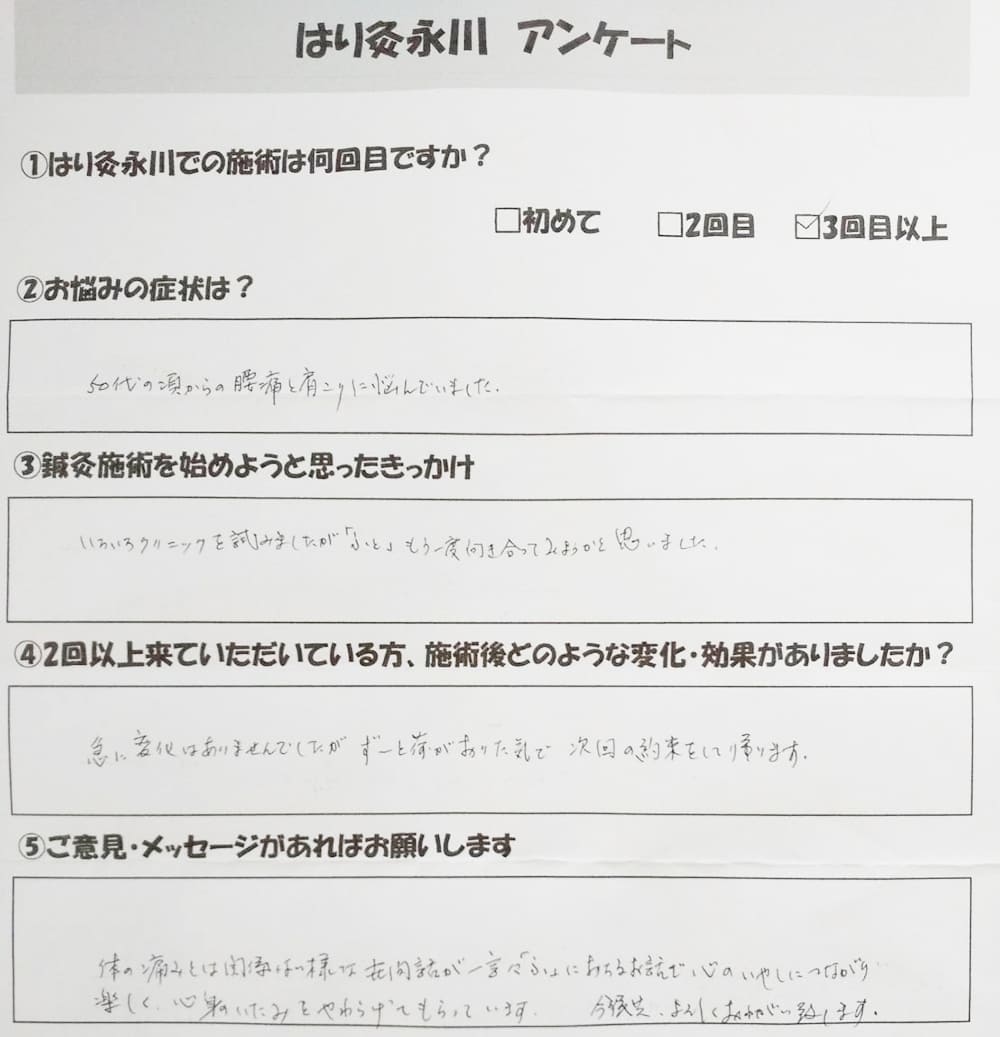 はり灸永川 アンケート
①はり灸永川での施術は何回目ですか？
□初めて □2回目 ☑3回目以上
②お悩みの症状は？
50代の頃からの腰痛と肩こりに悩んでいました。
③鍼灸施術を始めようと思ったきっかけ
いろいろクリニックを試みましたが「ふと」もう一度向き合ってみようかと思いました。
④2回以上来ていただいている方、施術後どのような変化・効果がありましたか？
急に変化はありませんでしたが ずーと荷がおりた気で 次回の約束をして帰ります。
⑤ご意見・メッセージがあればお願いします
体の痛みとは関係ない様な お話で心のいやしにつながり
楽しく、心身のいたみをやわらげてもらっています。 よろしくおねがい致します。